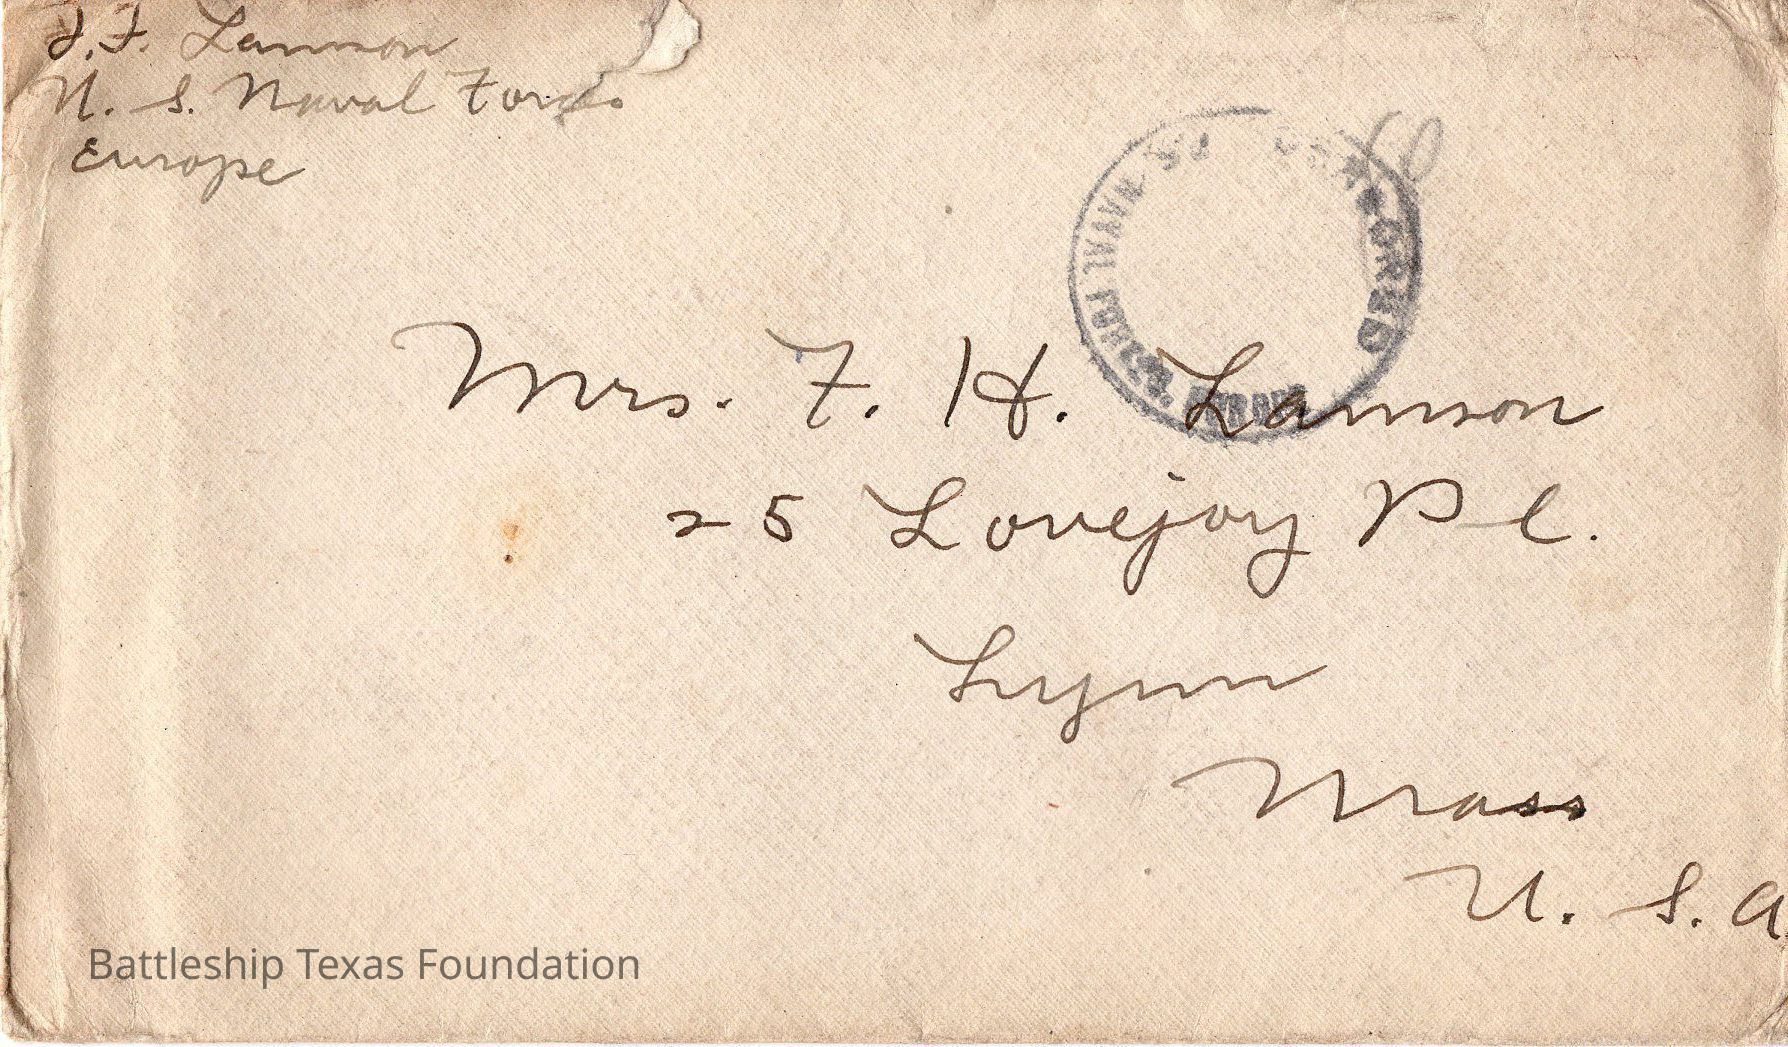 F. Lamson
U. S. Naval Forces
Europe
U.S. NAVAL FORCES
Mrs. F. H. Lamson
25 Lovejoy Pl.
Lynn
Mass
U. S. A.
Battleship Texas Foundation